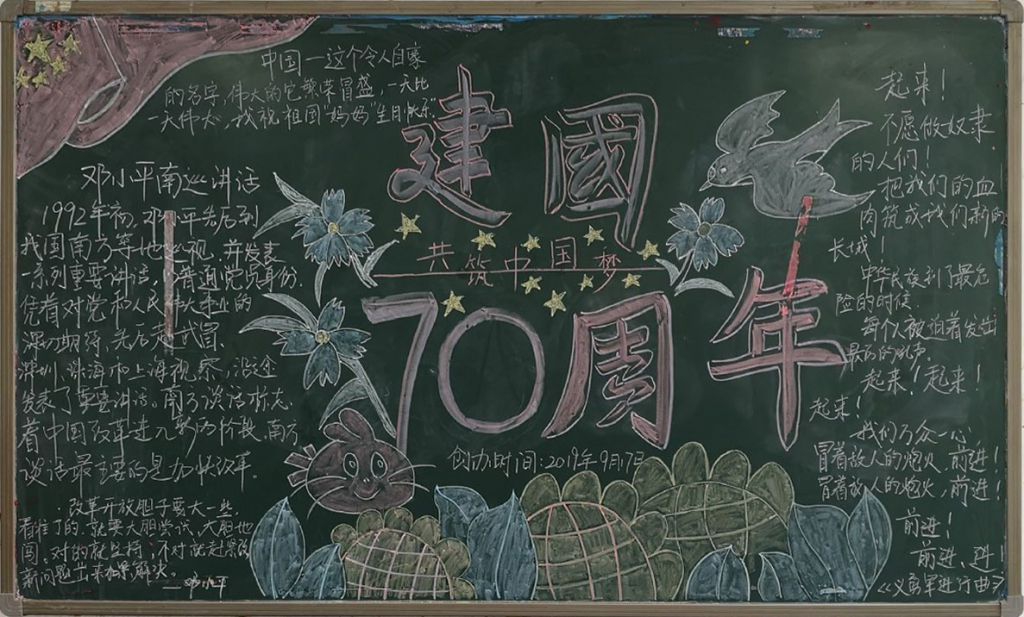 中国一这个令人自豪
的名字,伟大的它繁荣冒盛,一天比
一天伟大,我祝祖国妈妈"生日快乐"
建國
共筑中国梦
70周年
创办时间:2019年9月17日
邓小平南巡讲话
1992年初,邓小平先后到
我国南方等地巡视,并发表
一系列重要讲话,普通党员身份,
凭着对党和人民伟大事业的
深切期待,先后赴武昌、
深圳、珠海和上海视察,沿途
发表了重要讲话,南方谈话标志
着中国改革进入新的阶段,南方
谈话最主要的是加快改革。
改革开放胆子要大一些
看准了的,就要大胆尝试,大胆地
闯。对的就坚持,不对就赶紧改
新问题出来抓紧解决。
一邓小平
起来!
不愿做奴隶
的人们!
把我们的血
肉筑成我们新的
长城!
中华民族到了最危
险的时候
每个人被迫着发出
最后的吼声。
起来!起来!
起来!
我们万众一心
冒着敌人的炮火,前进!
冒着敌人的炮火,前进!
前进!
前进、进!
《义勇军进行曲》